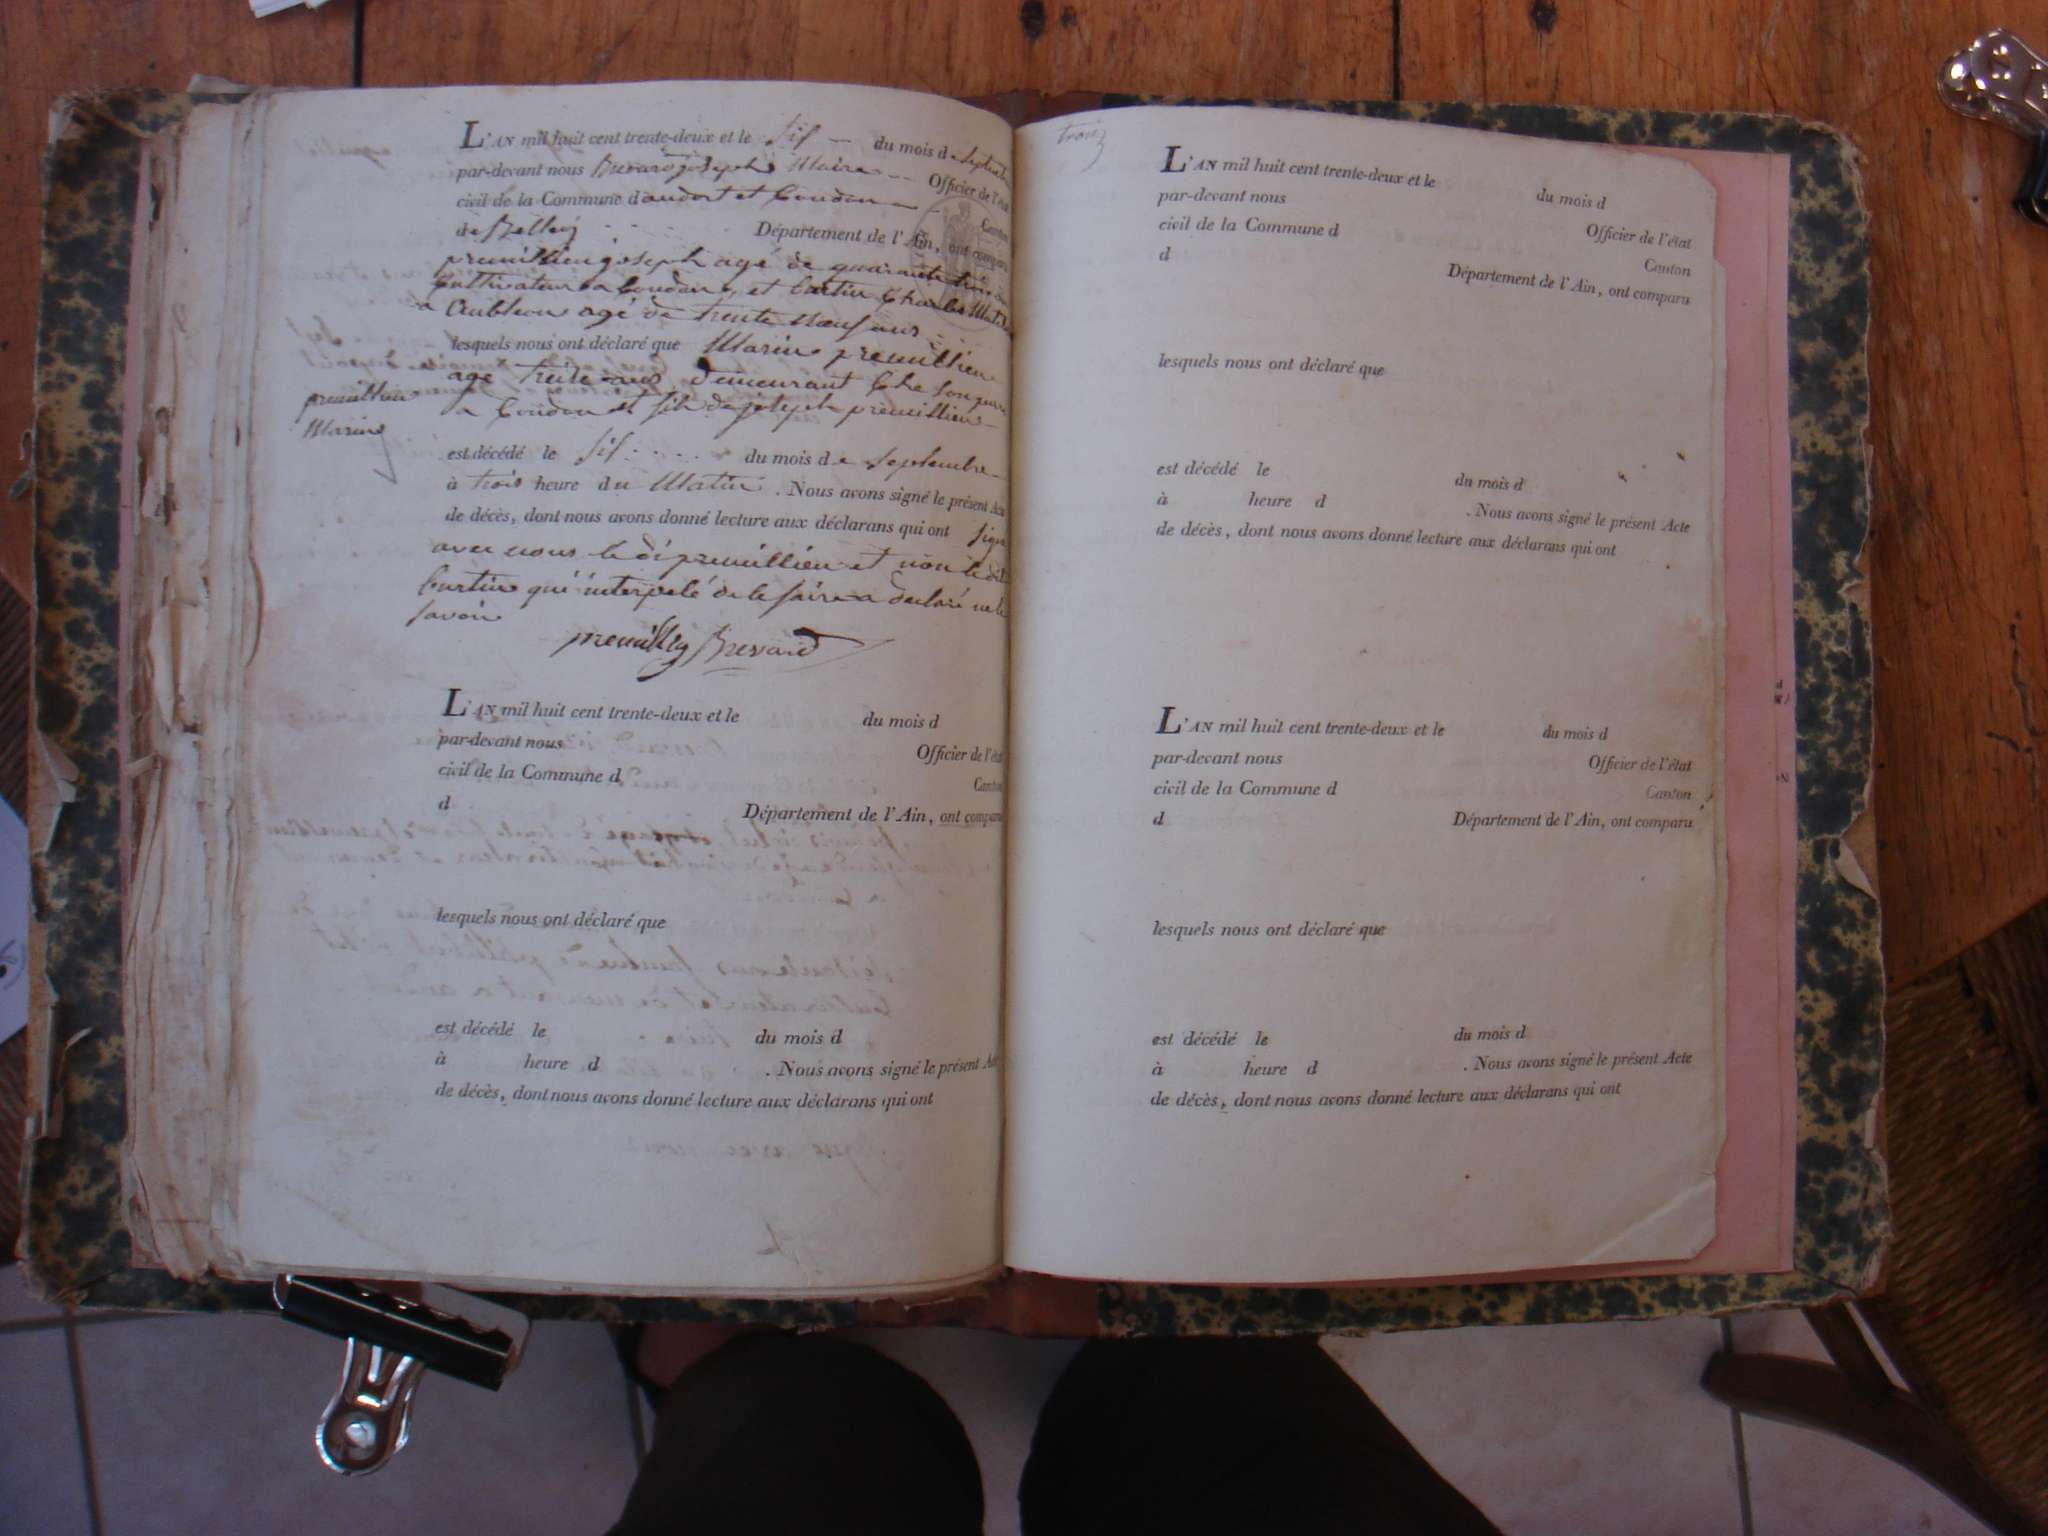 L'AN mil huit cent trente-deux et le sis du mois de septembre
par-devant nous Brevard joseph Maire Officier de l'état
civil de la Commune d'andert et Coudon Canton
de Belley Département de l'Ain, ont comparu
premillieu joseph agé de quarante trois ans
Cultivateur a Coudon, et Curtin Charles
a agé de trente neuf ans
lesquels nous ont déclaré que Marin premillieu
age treize ans demeurant Che son pere
a Coudon et fils de joseph premillieu
premillieu
Marin
est décédé le sis du mois de septembre
à trois heure du Matin. Nous avons signé le présent Acte
de décès, dont nous avons donné lecture aux déclarans qui ont signé
avec nous le di premillieu et non le dit
Curtin qui interpelé de le faire a declaré ne le
savoir
premillieu Brevard
L'AN mil huit cent trente-deux et le du mois d
par-devant nous Officier de l'état
civil de la Commune d Canton
d Département de l'Ain, ont comparu
lesquels nous ont déclaré que
est décédé le du mois d
à heure d . Nous avons signé le présent Acte
de décès, dont nous avons donné lecture aux déclarans qui ont
trois
L'AN mil huit cent trente-deux et le du mois d
par-devant nous Officier de l'état
civil de la Commune d Canton
d Département de l'Ain, ont comparu
lesquels nous ont déclaré que
est décédé le du mois d
à heure d . Nous avons signé le présent Acte
de décès, dont nous avons donné lecture aux déclarans qui ont
L'AN mil huit cent trente-deux et le du mois d
par-devant nous Officier de l'état
civil de la Commune d Canton
d Département de l'Ain, ont comparu
lesquels nous ont déclaré que
est décédé le du mois d
à heure d . Nous avons signé le présent Acte
de décès, dont nous avons donné lecture aux déclarans qui ont